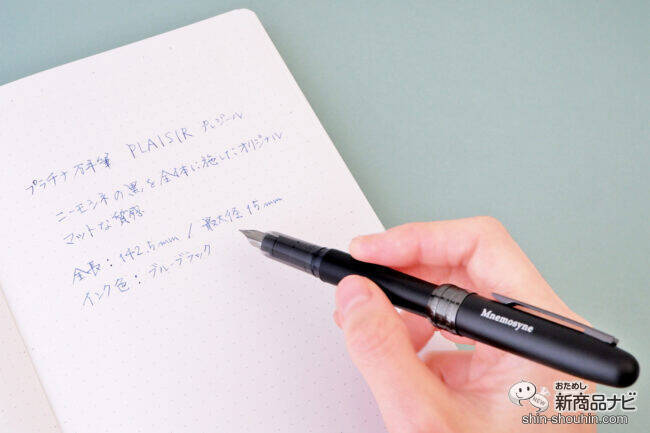 プラチナ万年筆 PLAISIR プレジール
ニーモシネの黒を全体に施したオリジナル
マットな質感
全長:142.5mm / 最大径15mm
インク色:ブルーブラック
Mnemosyne
おためし
新商品ナビ
NEW
shin-shouhin.com